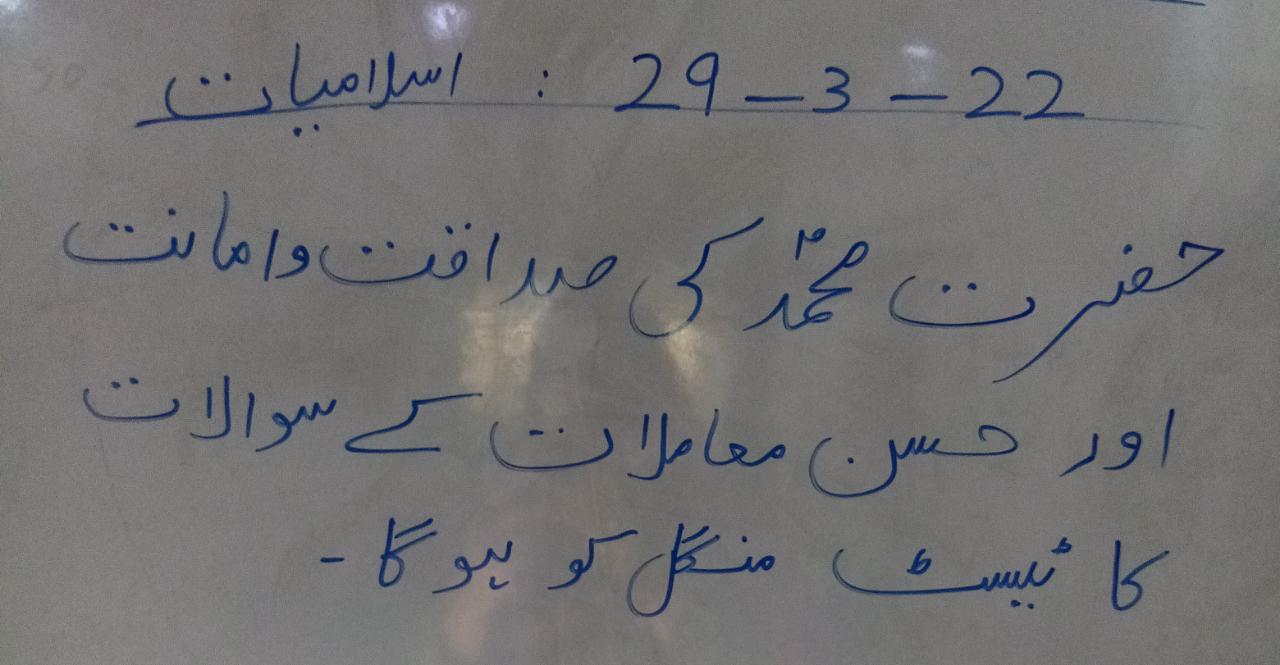 29-3-22 : اسلامیات
حضرت محمدؐ کی صداقت و امانت
اور حسن معاملات کے سوالات
کا ٹیسٹ منگل کو ہوگا۔